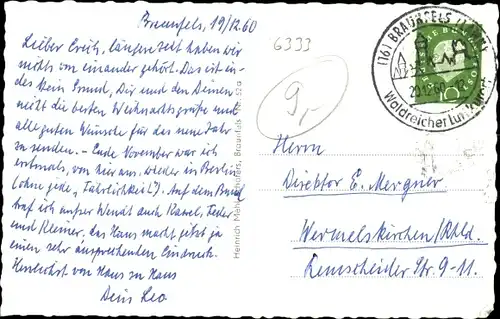 Braunfels, 19/12.60
Lieber Erich, längere Zeit haben wir
nichts von einander gehört. Das ist in-
des kein Grund, Dir und den Deinen
nicht die besten Weihnachtsgrüße und
alle guten Wünsche für das neue Jahr
zu senden. - Ende November war ich
erstmals, von hier aus, wieder in Berlin
(ohne jede "Fährlichkeit"). Auf dem Bund
traf ich außer Wendt auch Kasel, Feder
und Kleiner. Das Haus macht jetzt ja
einen sehr ansprechenden Eindruck.
Herzlichst von Haus zu Haus
Dein Leo
6333
9,-
Heinrich Mehl, Braunfels
(16) BRAUNFELS (LAHN)
20.12.60
Waldreicher Luftkurort
Herrn
Direktor E. Mergner
Wermelskirchen/Rhld.
Remscheider Str. 9-11.